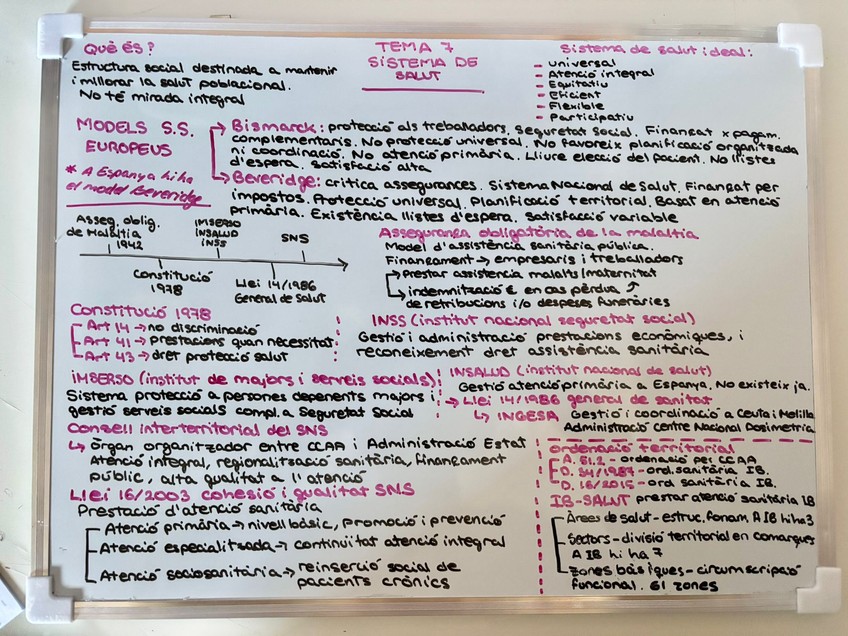 Què és?
Estructura social destinada a mantenir
i millorar la salut poblacional.
No té mirada integral
TEMA 7
SISTEMA DE
SALUT
Sistema de salut ideal:
- universal
- Atenció integral
- Equitatiu
- Eficient
- Flexible
- Participatiu
MODELS S.S.
EUROPEUS
* A Espanya hi ha
el model Beveridge
Bismarck: protecció als treballadors. Seguretat Social. Finançat x pagam.
complementaris. No protecció universal. No favoreix planificació organitzada
ni coordinació. No atenció primària. Lliure elecció del pacient. No llistes
d'espera. Satisfacció alta
Beveridge: critica assegurances. Sistema Nacional de Salut. Finançat per
impostos. Protecció universal. Planificació territorial. Basat en atenció
primària. Existència llistes d'espera. Satisfacció variable
Asseg. oblig.
de Malaltia
1942
Constitució
1978
IMSERSO
INSALUD
INSS
Llei 14/1986
General de Salut
SNS
Assegurança obligatòria de la malaltia
Model d'assistència sanitària pública.
Finançament → empresaris i treballadors
→ Prestar assistencia malalts/maternitat
→ indemnització € en cas pèrdua
de retribucions i/o despeses funeràries
Constitució 1978
Art 14 → no discriminació
Art 41 → prestacions quan necessitat
Art 43 → dret protecció salut
INSS (institut nacional seguretat social)
Gestió i administració prestacions econòmiques, i
reconeixement dret assistència sanitària
IMSERSO (institut de majors i serveis socials)
Sistema protecció a persones depenents majors i
gestió serveis socials compl. a Seguretat Social
INSALUD (institut nacional de salut)
Gestió atenció primària a Espanya. No existeix ja.
→ Llei 14/1986 general de sanitat
↳ INGESA Gestió i coordinació a Ceuta i Melilla
Administració Centre Nacional Dosimetria
Consell interterritorial del SNS
↳ Òrgan organitzador entre CCAA i Administració Estat
Atenció integral, regionalització sanitària, finançament
públic, alta qualitat a l'atenció
Llei 16/2003 cohesió i qualitat SNS
Prestació d'atenció sanitària
Atenció primària → nivell bàsic, promoció i prevenció
Atenció especialitzada → continuïtat atenció integral
Atenció sociosanitària → reinserció social de
pacients crònics
Ordenació territorial
A. 51.2 - ordenació per CCAA
D. 34/1987 - ord. sanitària IB.
D. 16/2015 - ord sanitària IB.
IB-SALUT prestar atenció sanitària IB
Àrees de salut - estruc. fonam. A IB hi ha 3
Sectors - divisió territorial en comarques
A IB hi ha 7
Zones bàsiques - circumscripció
funcional. 61 zones